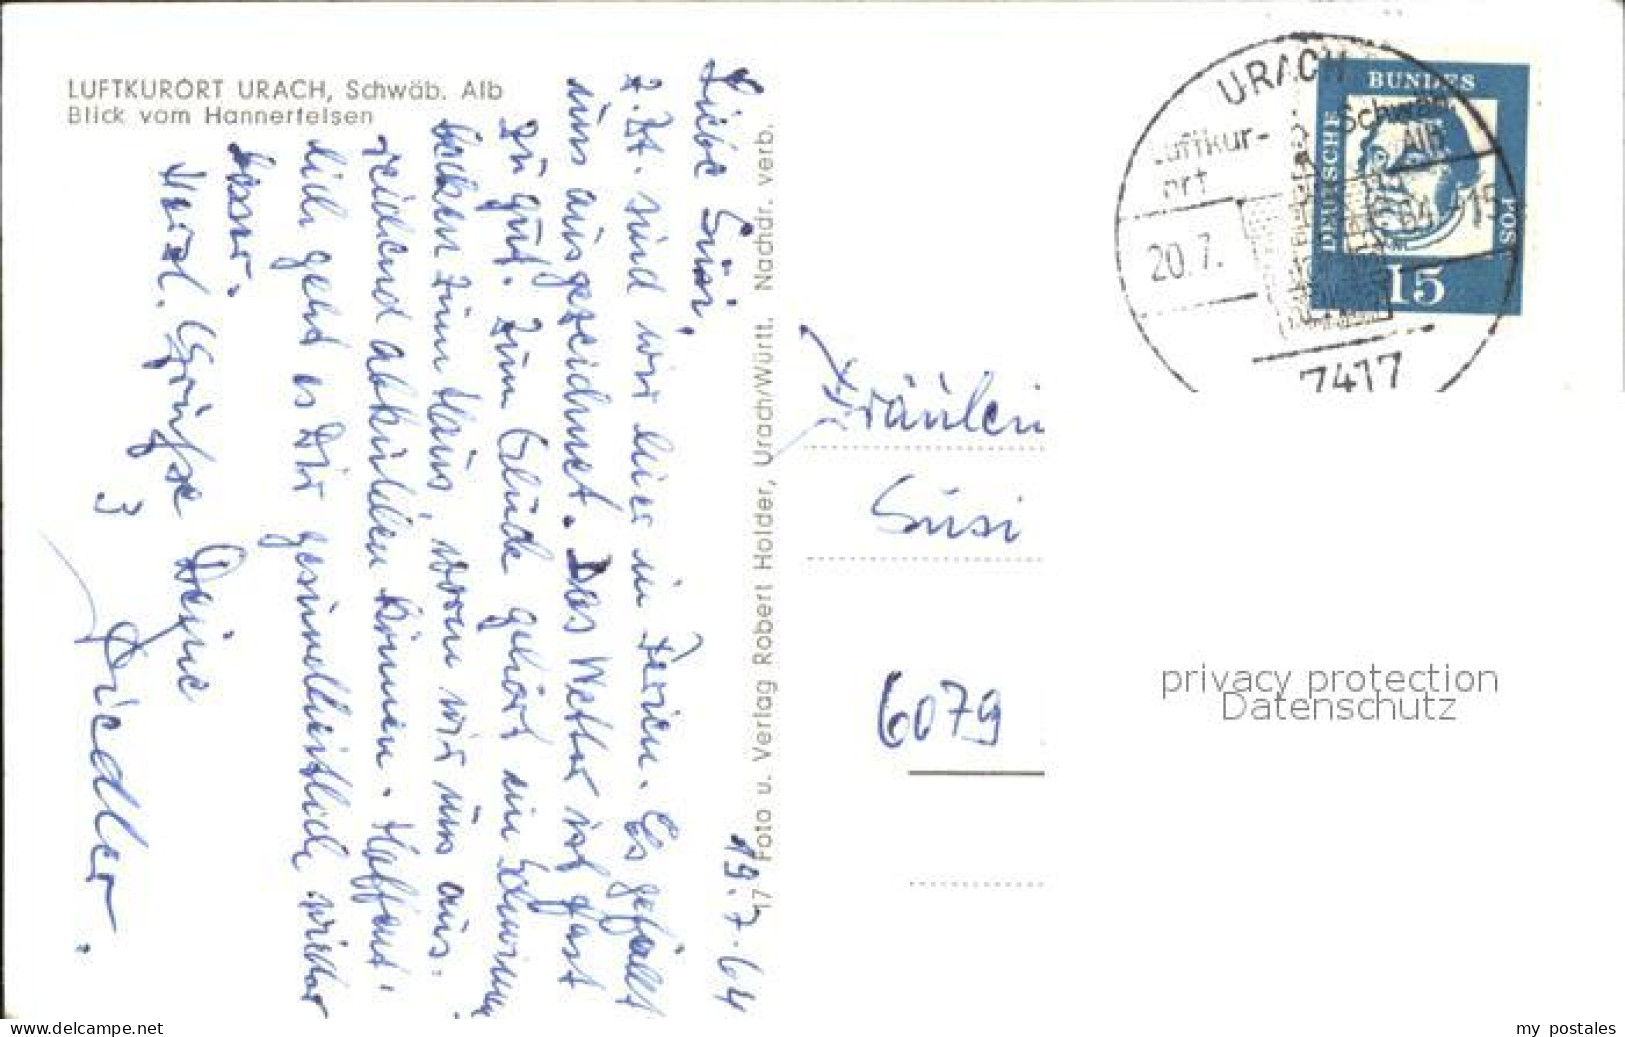 LUFTKURORT URACH, Schwäb. Alb
Blick vom Hannerfelsen
19.7.64
Liebe Susi,
z. Zt. sind wir hier in Ferien. Es gefällt
uns ausgezeichnet. Das Wetter ist fast
zu gut. Zum Glück gehört ein Schwimm
becken zum Haus, worin wir uns aus-
reichend abkühlen können. Hoffent-
lich geht es Dir gesundheitlich wieder
besser.
Herzl. Grüße Deine
Friedler.
17 Foto u. Verlag Robert Holder, Urach/Württ. Nachdr. verb.
URACH
Luftkur-
ort
Schwäb.
Alb
20.7.64-15
7417
DEUTSCHE
BUNDES
POS
15
Fräulein
Susi
6079
privacy protection
Datenschutz
www.delcampe.net
my postales